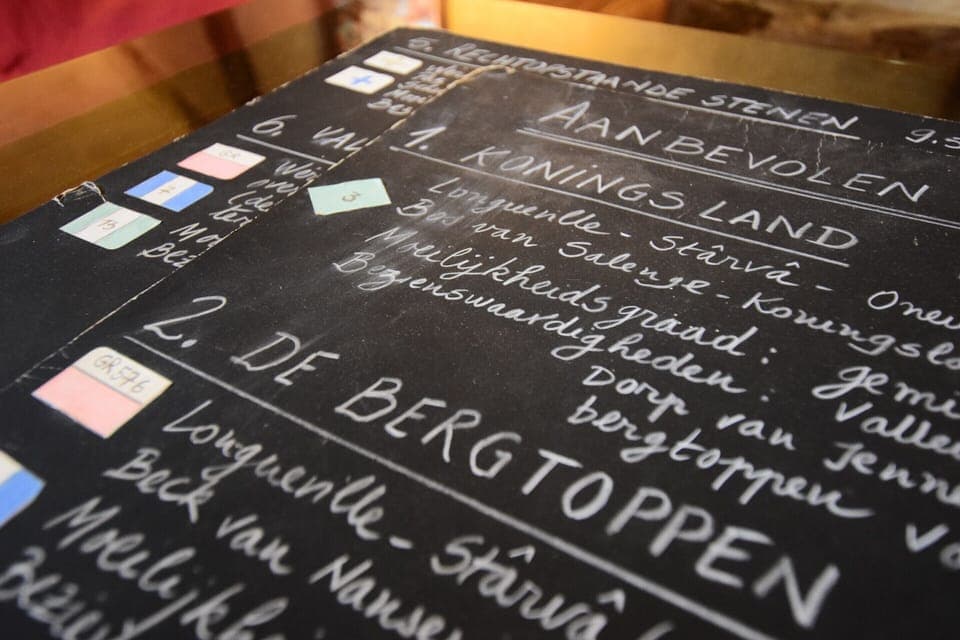 RECHTOPSTAANDE STENEN
6. VAL
GR
AANBEVOLEN
1. KONINGSLAND
3
Longueville - Stârvâ - Oneu
Bod van Salenge - Koningslo
Moeilijkheidsgraad : gemi
Bezienswaardigheden : Valle
Dorp van Jenne
bergtoppen
2. DE BERGTOPPEN
GR576
Longueville - Stârvâ
Beck van Nanse
Moeilijkh
Bezie